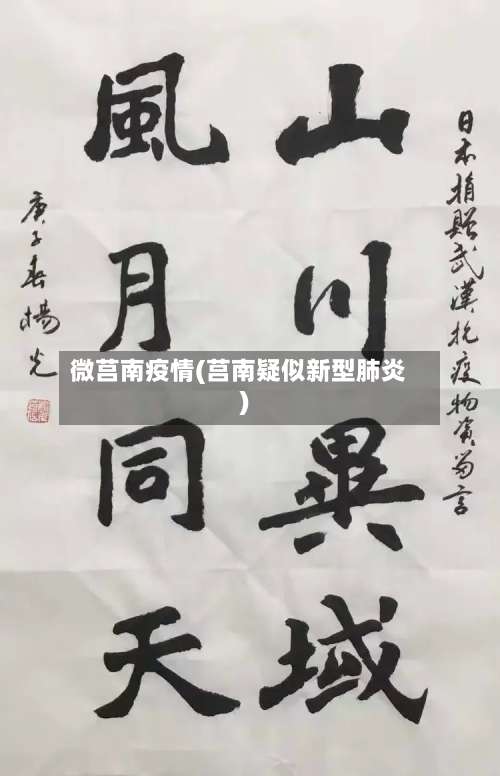 日本捐贈武漢抗疫物資留言
山川異域
風月同天
庚子春楊光
微莒南疫情(莒南疑似新型肺炎
)